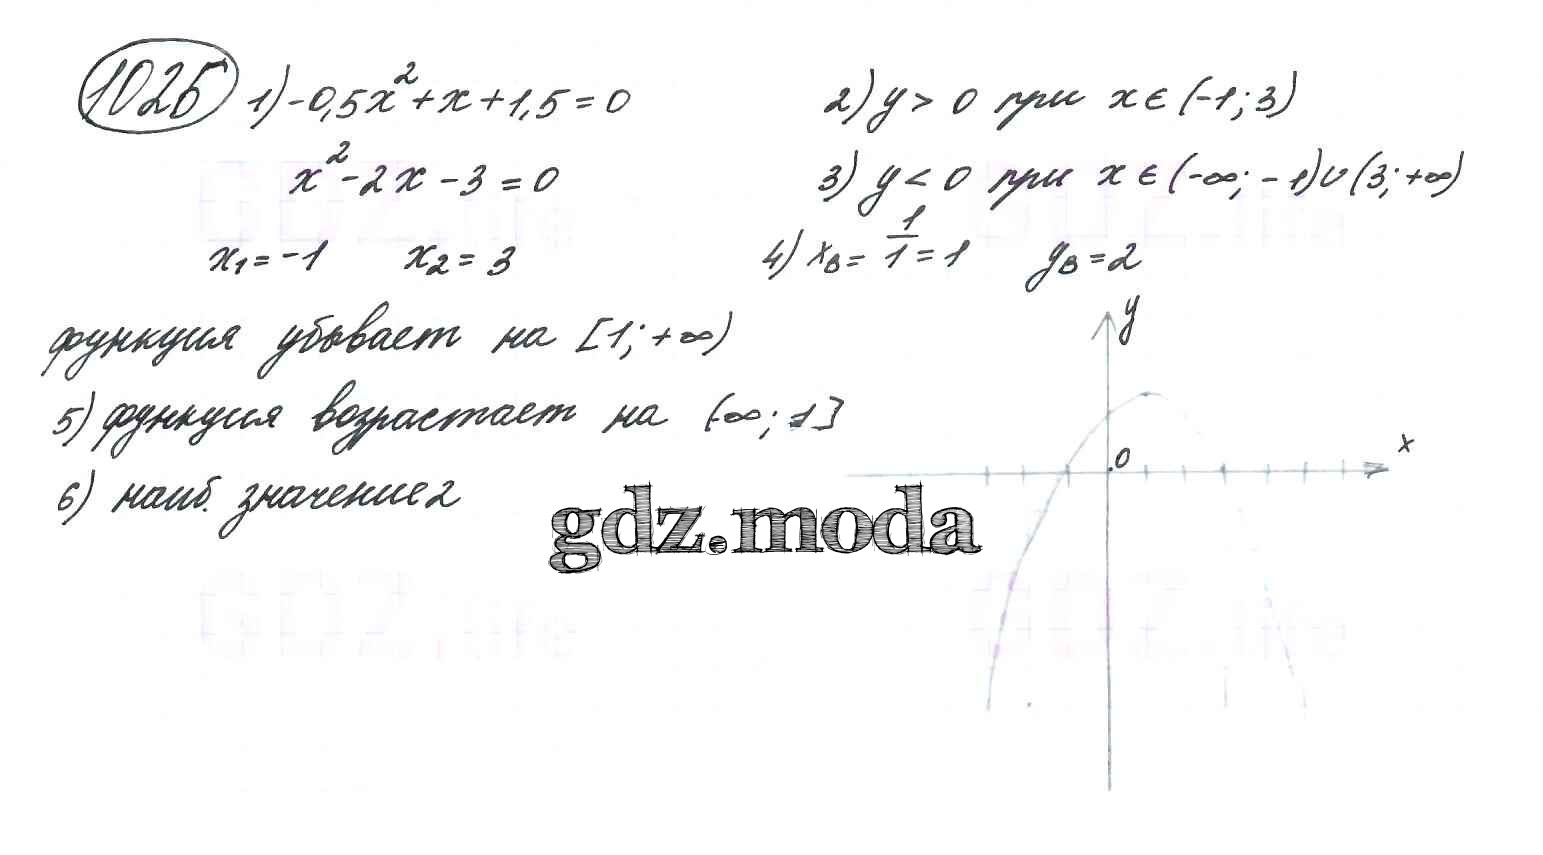 1025
1) -0,5x² + x + 1,5 = 0
x² - 2x - 3 = 0
x₁ = -1 x₂ = 3
2) y > 0 при x ∈ (-1; 3)
3) y < 0 при x ∈ (-∞; -1) ∪ (3; +∞)
4) xв = 1/1 = 1 yв = 2
функция убывает на [1; +∞)
5) функция возрастает на (-∞; 1]
6) наиб. значение 2
y
x
0
gdz.moda
GDZ.life
GDZ.life
GDZ.life
GDZ.life